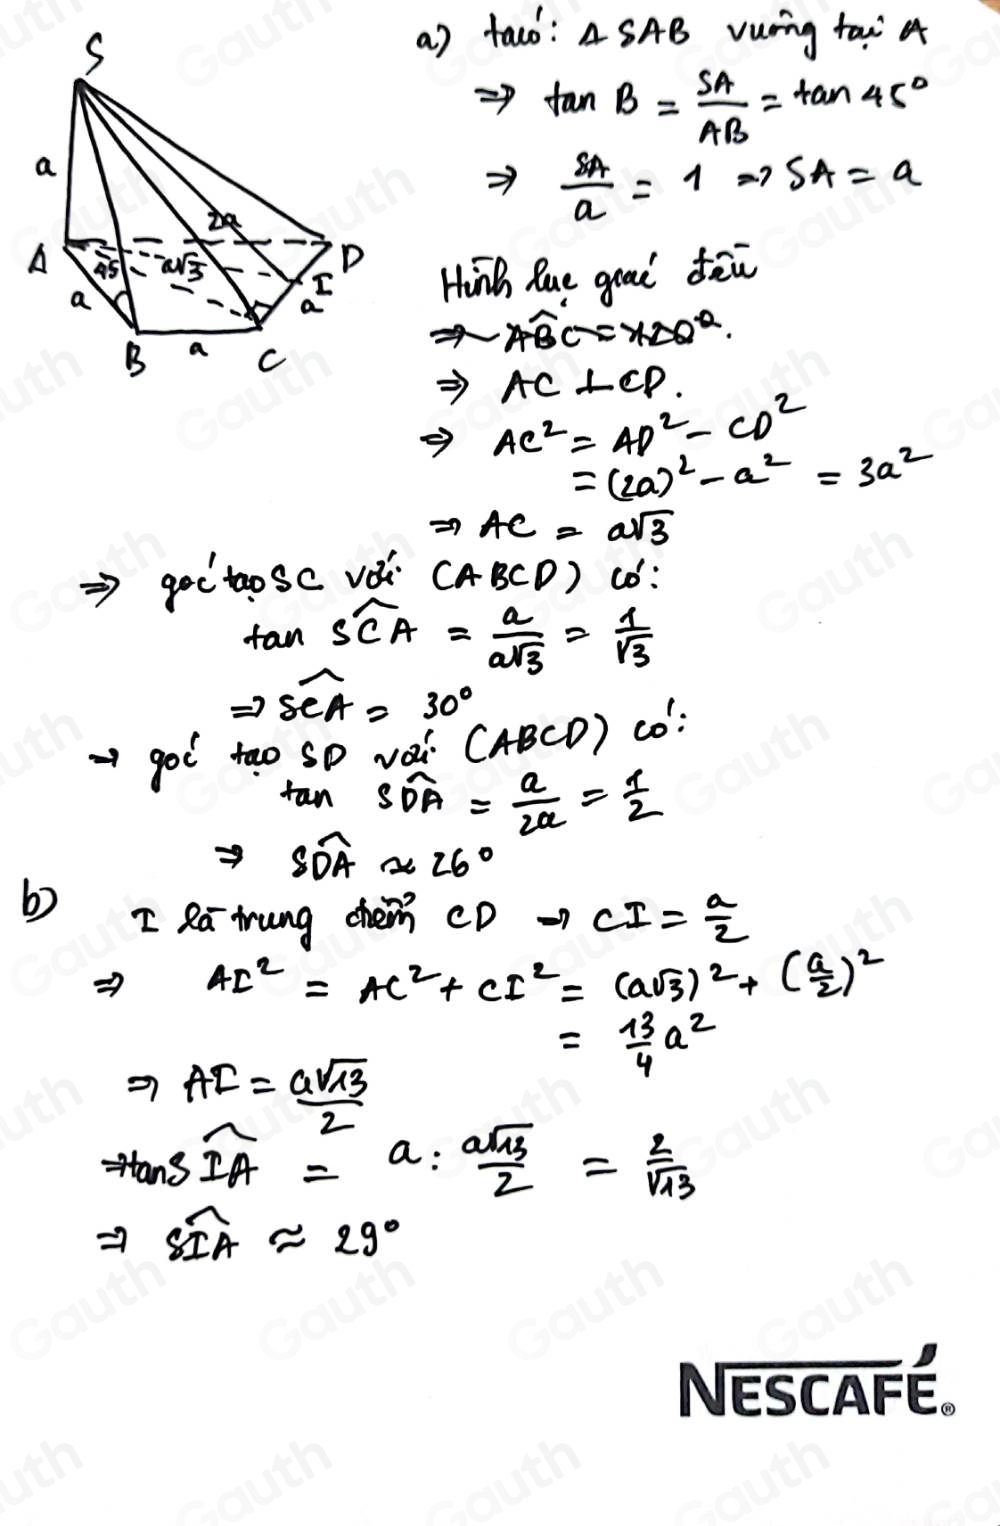 S
a
2a
A
45
a√3
D
I
a
a
B
a
C
a) ta có: Δ SAB vuông tại A
⇒ tan B = SA/AB = tan 45°
⇒ SA/a = 1 ⇒ SA = a
Hình lục giác đều
⇒ ABC = 120°.
⇒ AC ⊥ CD.
⇒ AC² = AD² - CD²
= (2a)² - a² = 3a²
⇒ AC = a√3
⇒ góc tạo SC với (ABCD) có:
tan SCA = a/a√3 = 1/√3
⇒ SCA = 30°
→ góc tạo SD với (ABCD) có:
tan SDA = a/2a = 1/2
⇒ SDA ≈ 26°
b)
I là trung điểm CD → CI = a/2
⇒ AI² = AC² + CI² = (a√3)² + (a/2)²
= 13/4 a²
⇒ AI = a√13/2
⇒ tan SIA = a : a√13/2 = 2/√13
⇒ SIA ≈ 29°
NESCAFÉ®
Gauth